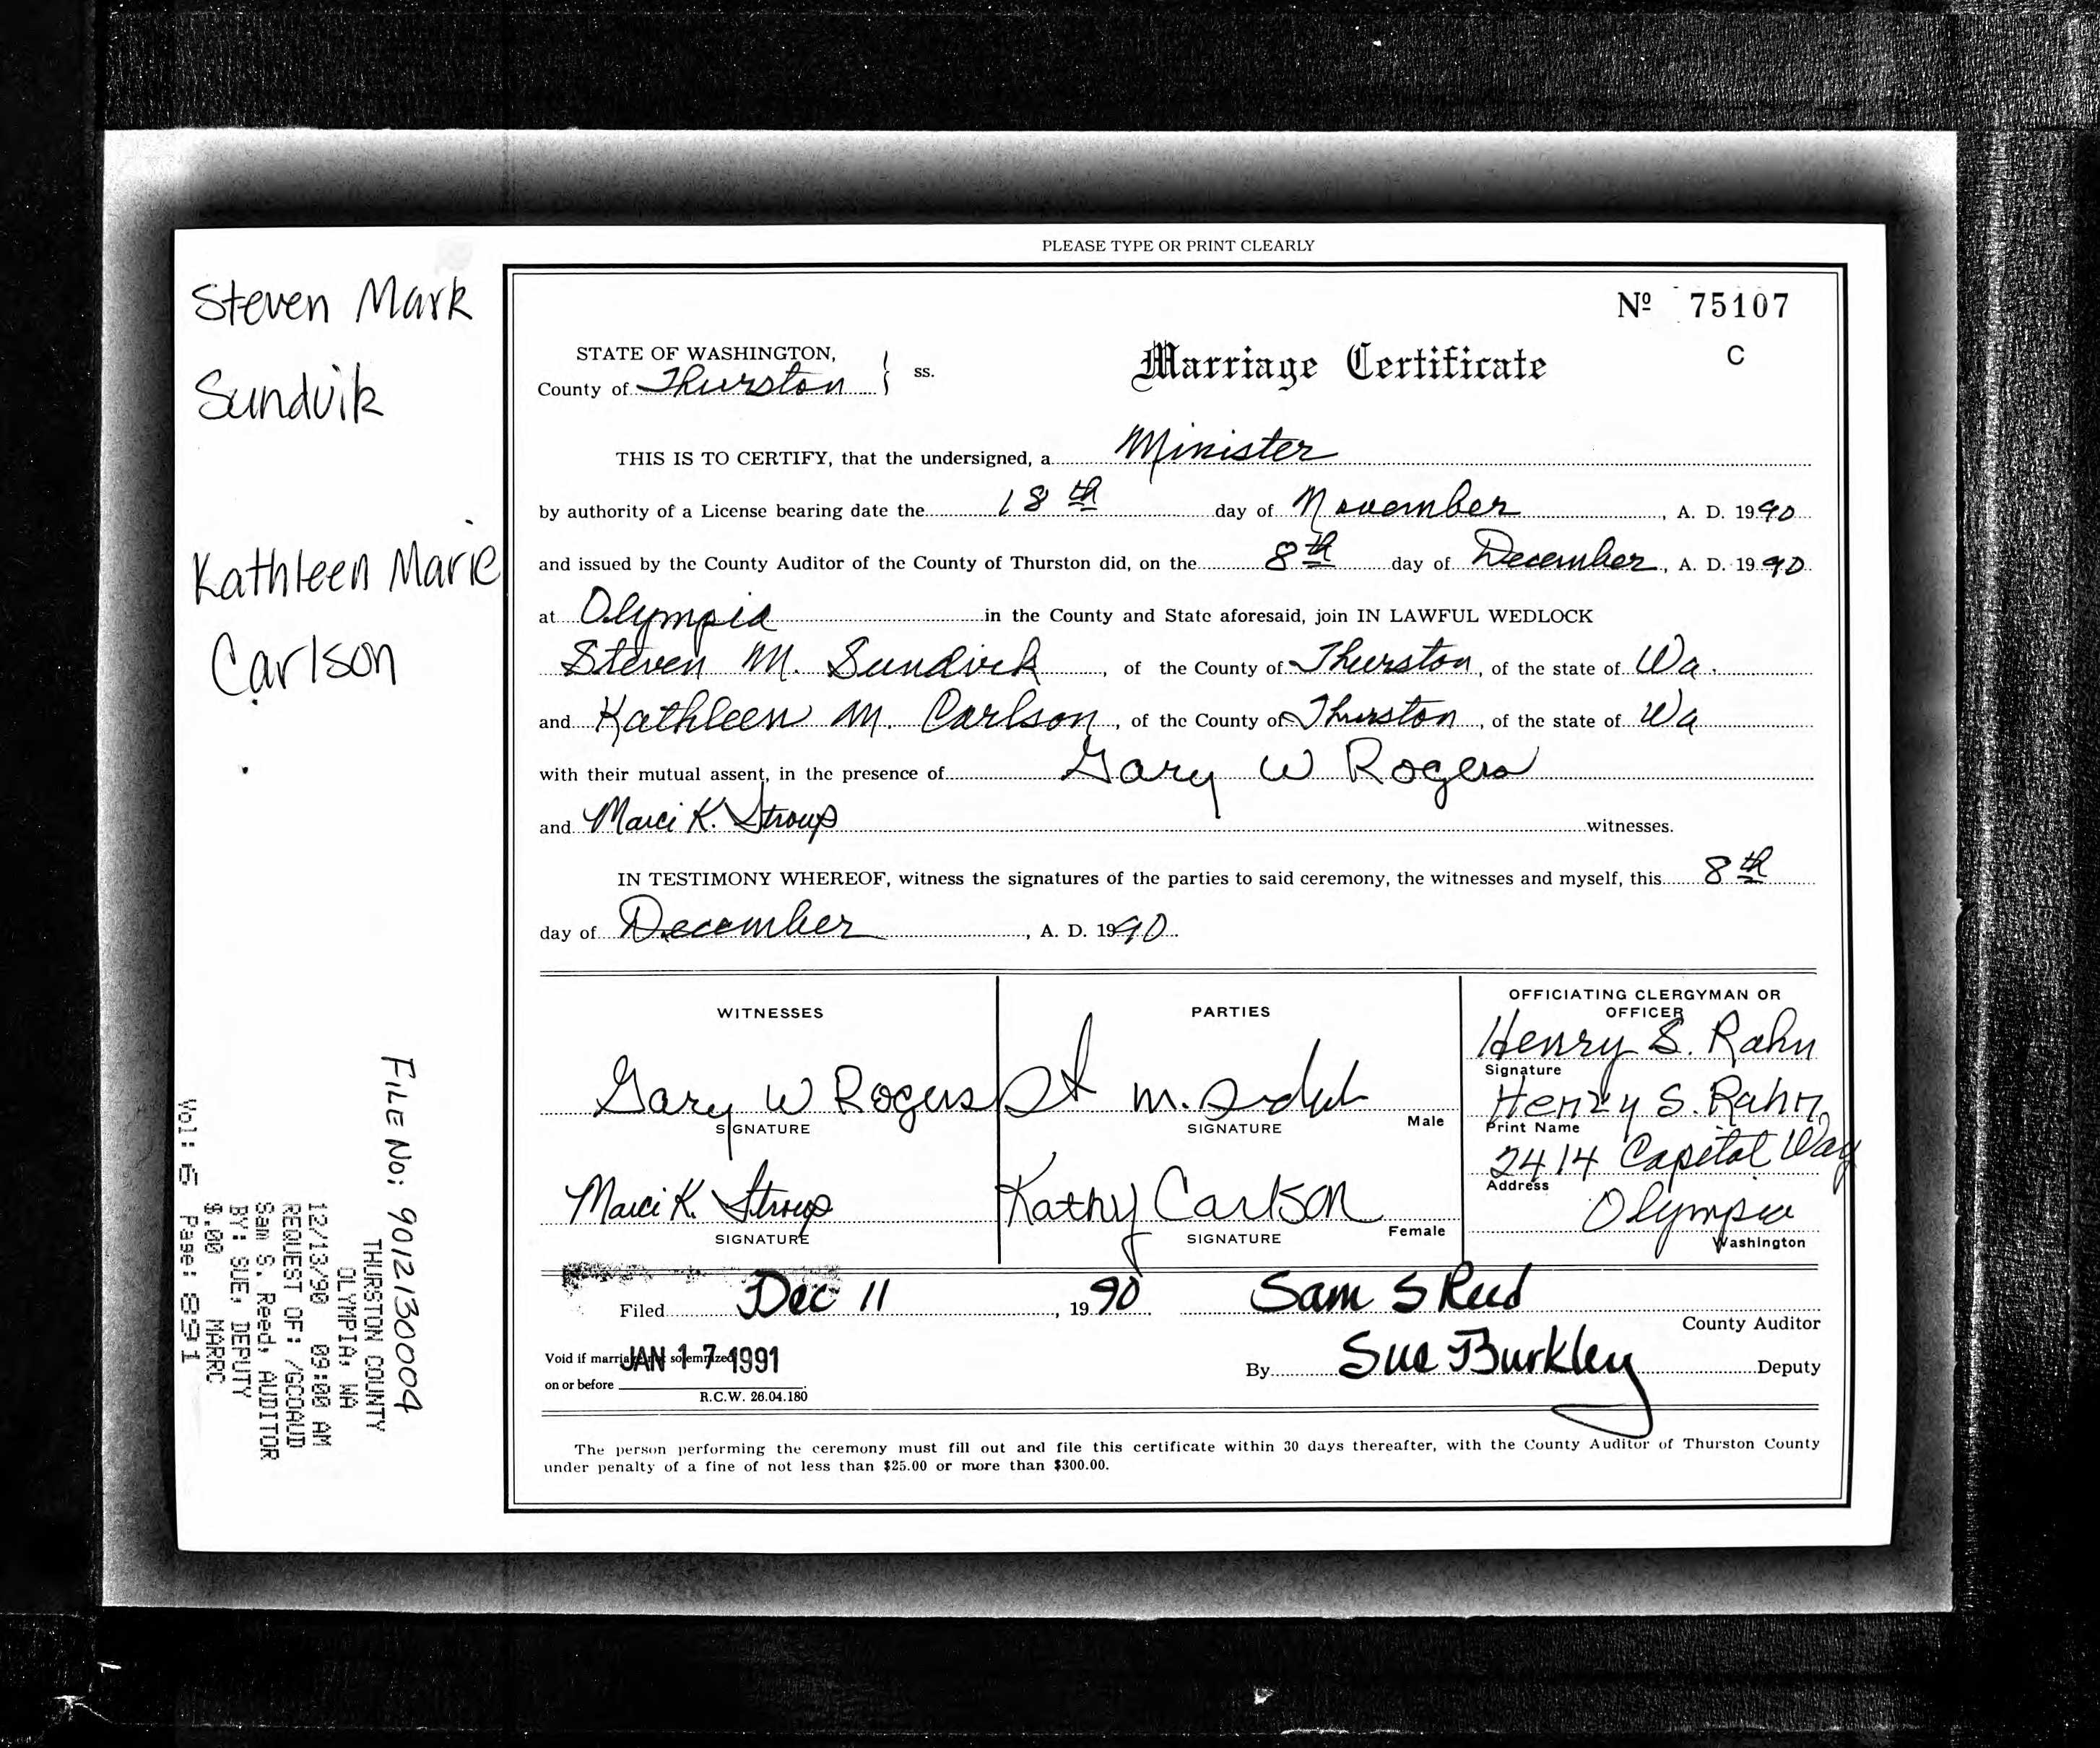 PLEASE TYPE OR PRINT CLEARLY
Steven Mark
Sundvik
Kathleen Marie
Carlson
Nº 75107
C
STATE OF WASHINGTON,
County of Thurston } ss.
Marriage Certificate
THIS IS TO CERTIFY, that the undersigned, a Minister
by authority of a License bearing date the 18th day of November, A. D. 1990
and issued by the County Auditor of the County of Thurston did, on the 8th day of December, A. D. 1990
at Olympia in the County and State aforesaid, join IN LAWFUL WEDLOCK
Steven M. Sundvik, of the County of Thurston, of the state of Wa.
and Kathleen M. Carlson, of the County of Thurston, of the state of Wa
with their mutual assent, in the presence of Gary W Rogers
and Marci K. Stroup witnesses.
IN TESTIMONY WHEREOF, witness the signatures of the parties to said ceremony, the witnesses and myself, this 8th
day of December, A. D. 1990.
WITNESSES
Gary W Rogers
SIGNATURE
Marci K. Stroup
SIGNATURE
PARTIES
M.
SIGNATURE Male
Kathy Carlson
SIGNATURE Female
OFFICIATING CLERGYMAN OR
OFFICER
Henry S. Rahn
Signature
Henry S. Rahn
Print Name
2414 Capitol Way
Address
Olympia
Washington
Filed Dec 11, 1990 Sam S Reed
County Auditor
Void if marriage not solemnized JAN 17 1991
on or before
R.C.W. 26.04.180
By Sue Burkley Deputy
The person performing the ceremony must fill out and file this certificate within 30 days thereafter, with the County Auditor of Thurston County
under penalty of a fine of not less than $25.00 or more than $300.00.
FILE No: 9012130004
THURSTON COUNTY
OLYMPIA, WA
12/13/90 09:00 AM
REQUEST OF: /GCOAUD
Sam S. Reed, AUDITOR
BY: SUE, DEPUTY
$.00 MARRC
Vol: 6 Page: 891